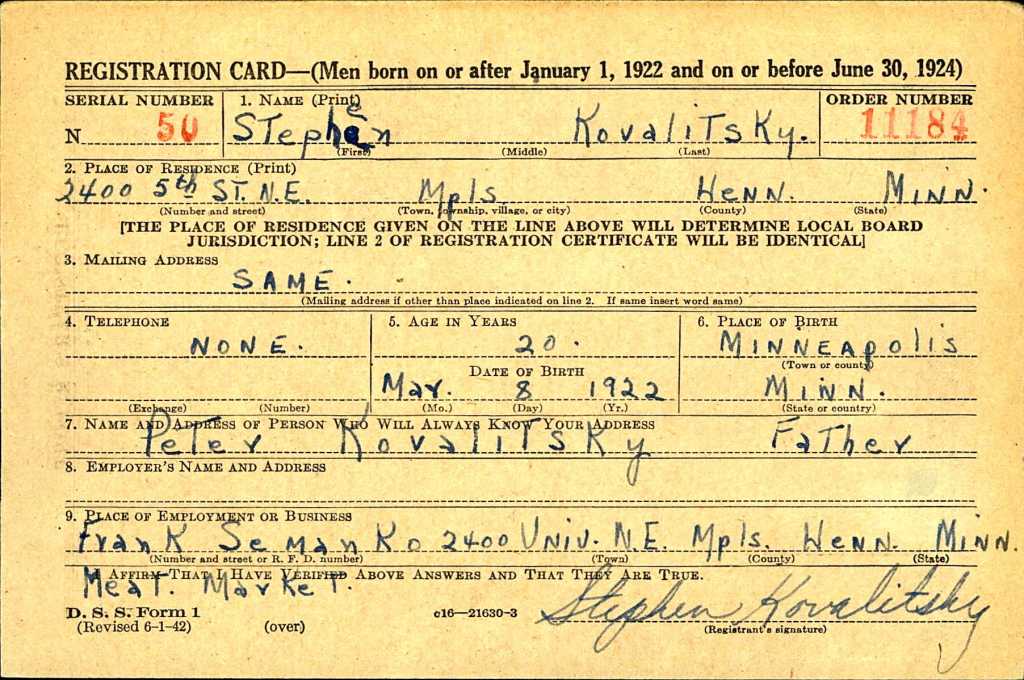 REGISTRATION CARD—(Men born on or after January 1, 1922 and on or before June 30, 1924)
SERIAL NUMBER 1. NAME (Print) ORDER NUMBER
N 50 Stephen Kovalitsky. 11184
(First) (Middle) (Last)
2. PLACE OF RESIDENCE (Print)
2400 5th ST. N.E. Mpls Henn. MINN.
(Number and street) (Town, township, village, or city) (County) (State)
[THE PLACE OF RESIDENCE GIVEN ON THE LINE ABOVE WILL DETERMINE LOCAL BOARD
JURISDICTION; LINE 2 OF REGISTRATION CERTIFICATE WILL BE IDENTICAL]
3. MAILING ADDRESS
SAME.
(Mailing address if other than place indicated on line 2. If same insert word same)
4. TELEPHONE 5. AGE IN YEARS 6. PLACE OF BIRTH
NONE. 20. MINNEApolis
(Town or county)
DATE OF BIRTH
Mar. 8 1922 MINN.
(Exchange) (Number) (Mo.) (Day) (Yr.) (State or country)
7. NAME AND ADDRESS OF PERSON WHO WILL ALWAYS KNOW YOUR ADDRESS
Peter Kovalitsky Father
8. EMPLOYER'S NAME AND ADDRESS
9. PLACE OF EMPLOYMENT OR BUSINESS
Frank Semanko 2400 Univ. N.E. Mpls. Henn. Minn.
(Number and street or R. F. D. number) (Town) (County) (State)
I AFFIRM THAT I HAVE VERIFIED ABOVE ANSWERS AND THAT THEY ARE TRUE.
Meat. Market.
D. S. S. Form 1 c16—21630-3 Stephen Kovalitsky
(Revised 6-1-42) (over) (Registrant's signature)